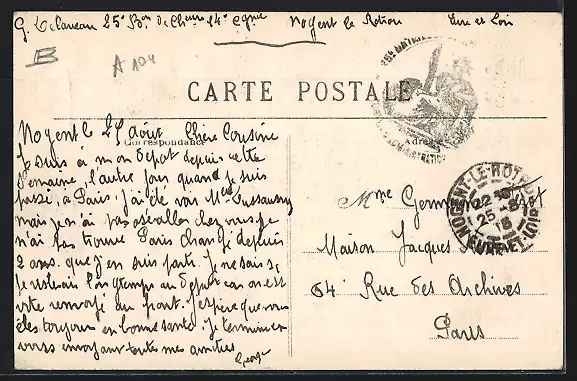 G. Delaveau 25e Bon de Cheurs 14e Cgnie Nogent le Rotrou Eure et Loir
B
A 104
CARTE POSTALE
Correspondance
Adresse
Nogent le 25 Août Chère Cousine
Je suis à mon depot depuis cette
semaine, l'autre jour quand je suis
passé, a Paris. j'ai été voir Mme
mais je n'ai pas osé aller chez vous je
n'ai pas trouvé Paris changé depuis
2 ans. que j'en suis parti. Je ne sais si
je resterais longtemps au depot car on est
vite renvoyé au front. J'espere que vous
êtes toujours en bonne santé. Je termine en
vous envoyant toutes mes amitiés
George
Mme
Maison Jacques
64 Rue des Archives
Paris
NOGENT-LE-ROTROU
25 -8
EURE-ET-LOIR